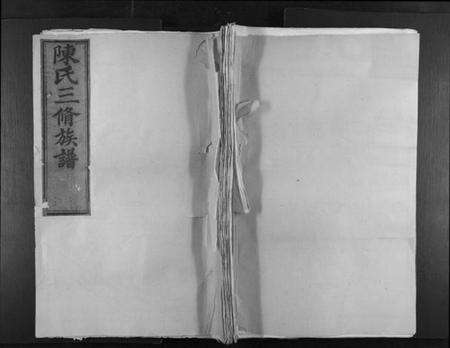 陳氏三脩族譜